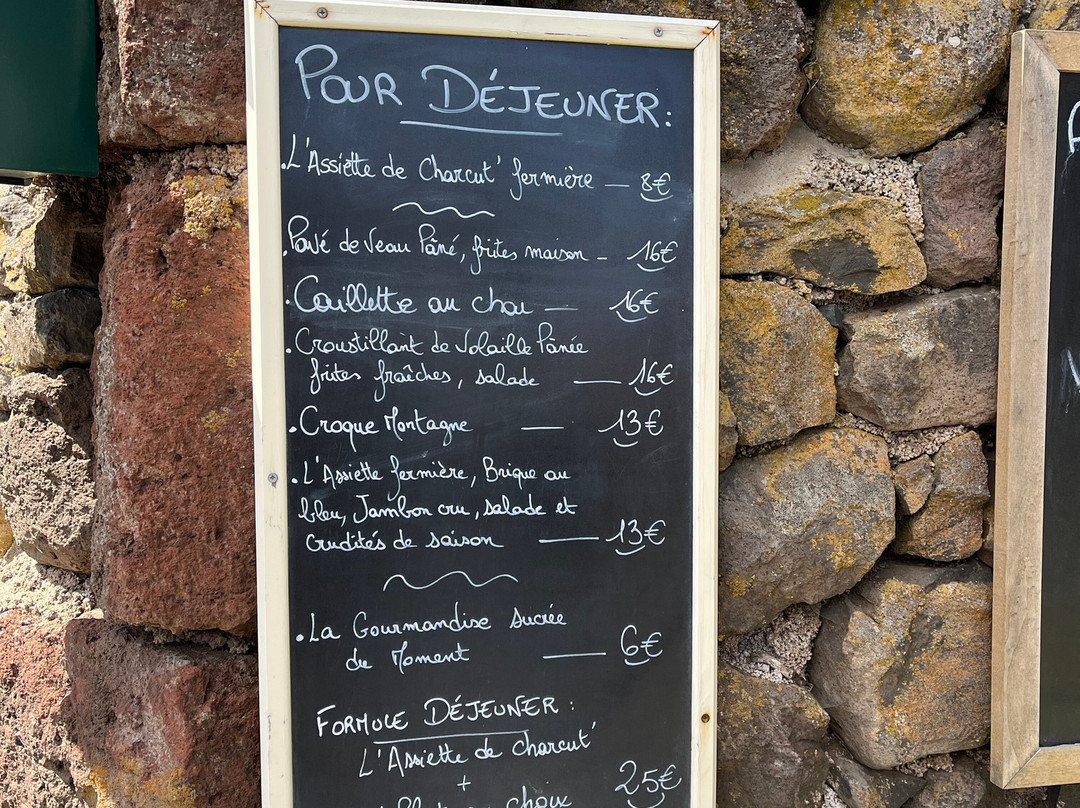 POUR DÉJEUNER:
.L'Assiette de Charcut' fermière — 8€
.Pavé de Veau Pâné, frites maison - 16€
.Caillette au chou — 16€
.Croustillant de Volaille Pânée
frites fraîches, salade — 16€
.Croque Montagne — 13€
.L'Assiette fermière, Brique au
bleu, Jambon cru, salade et
crudités de saison — 13€
.La Gourmandise sucrée
du Moment — 6€
FORMULE DÉJEUNER :
L'Assiette de charcut'
+
choix 25€